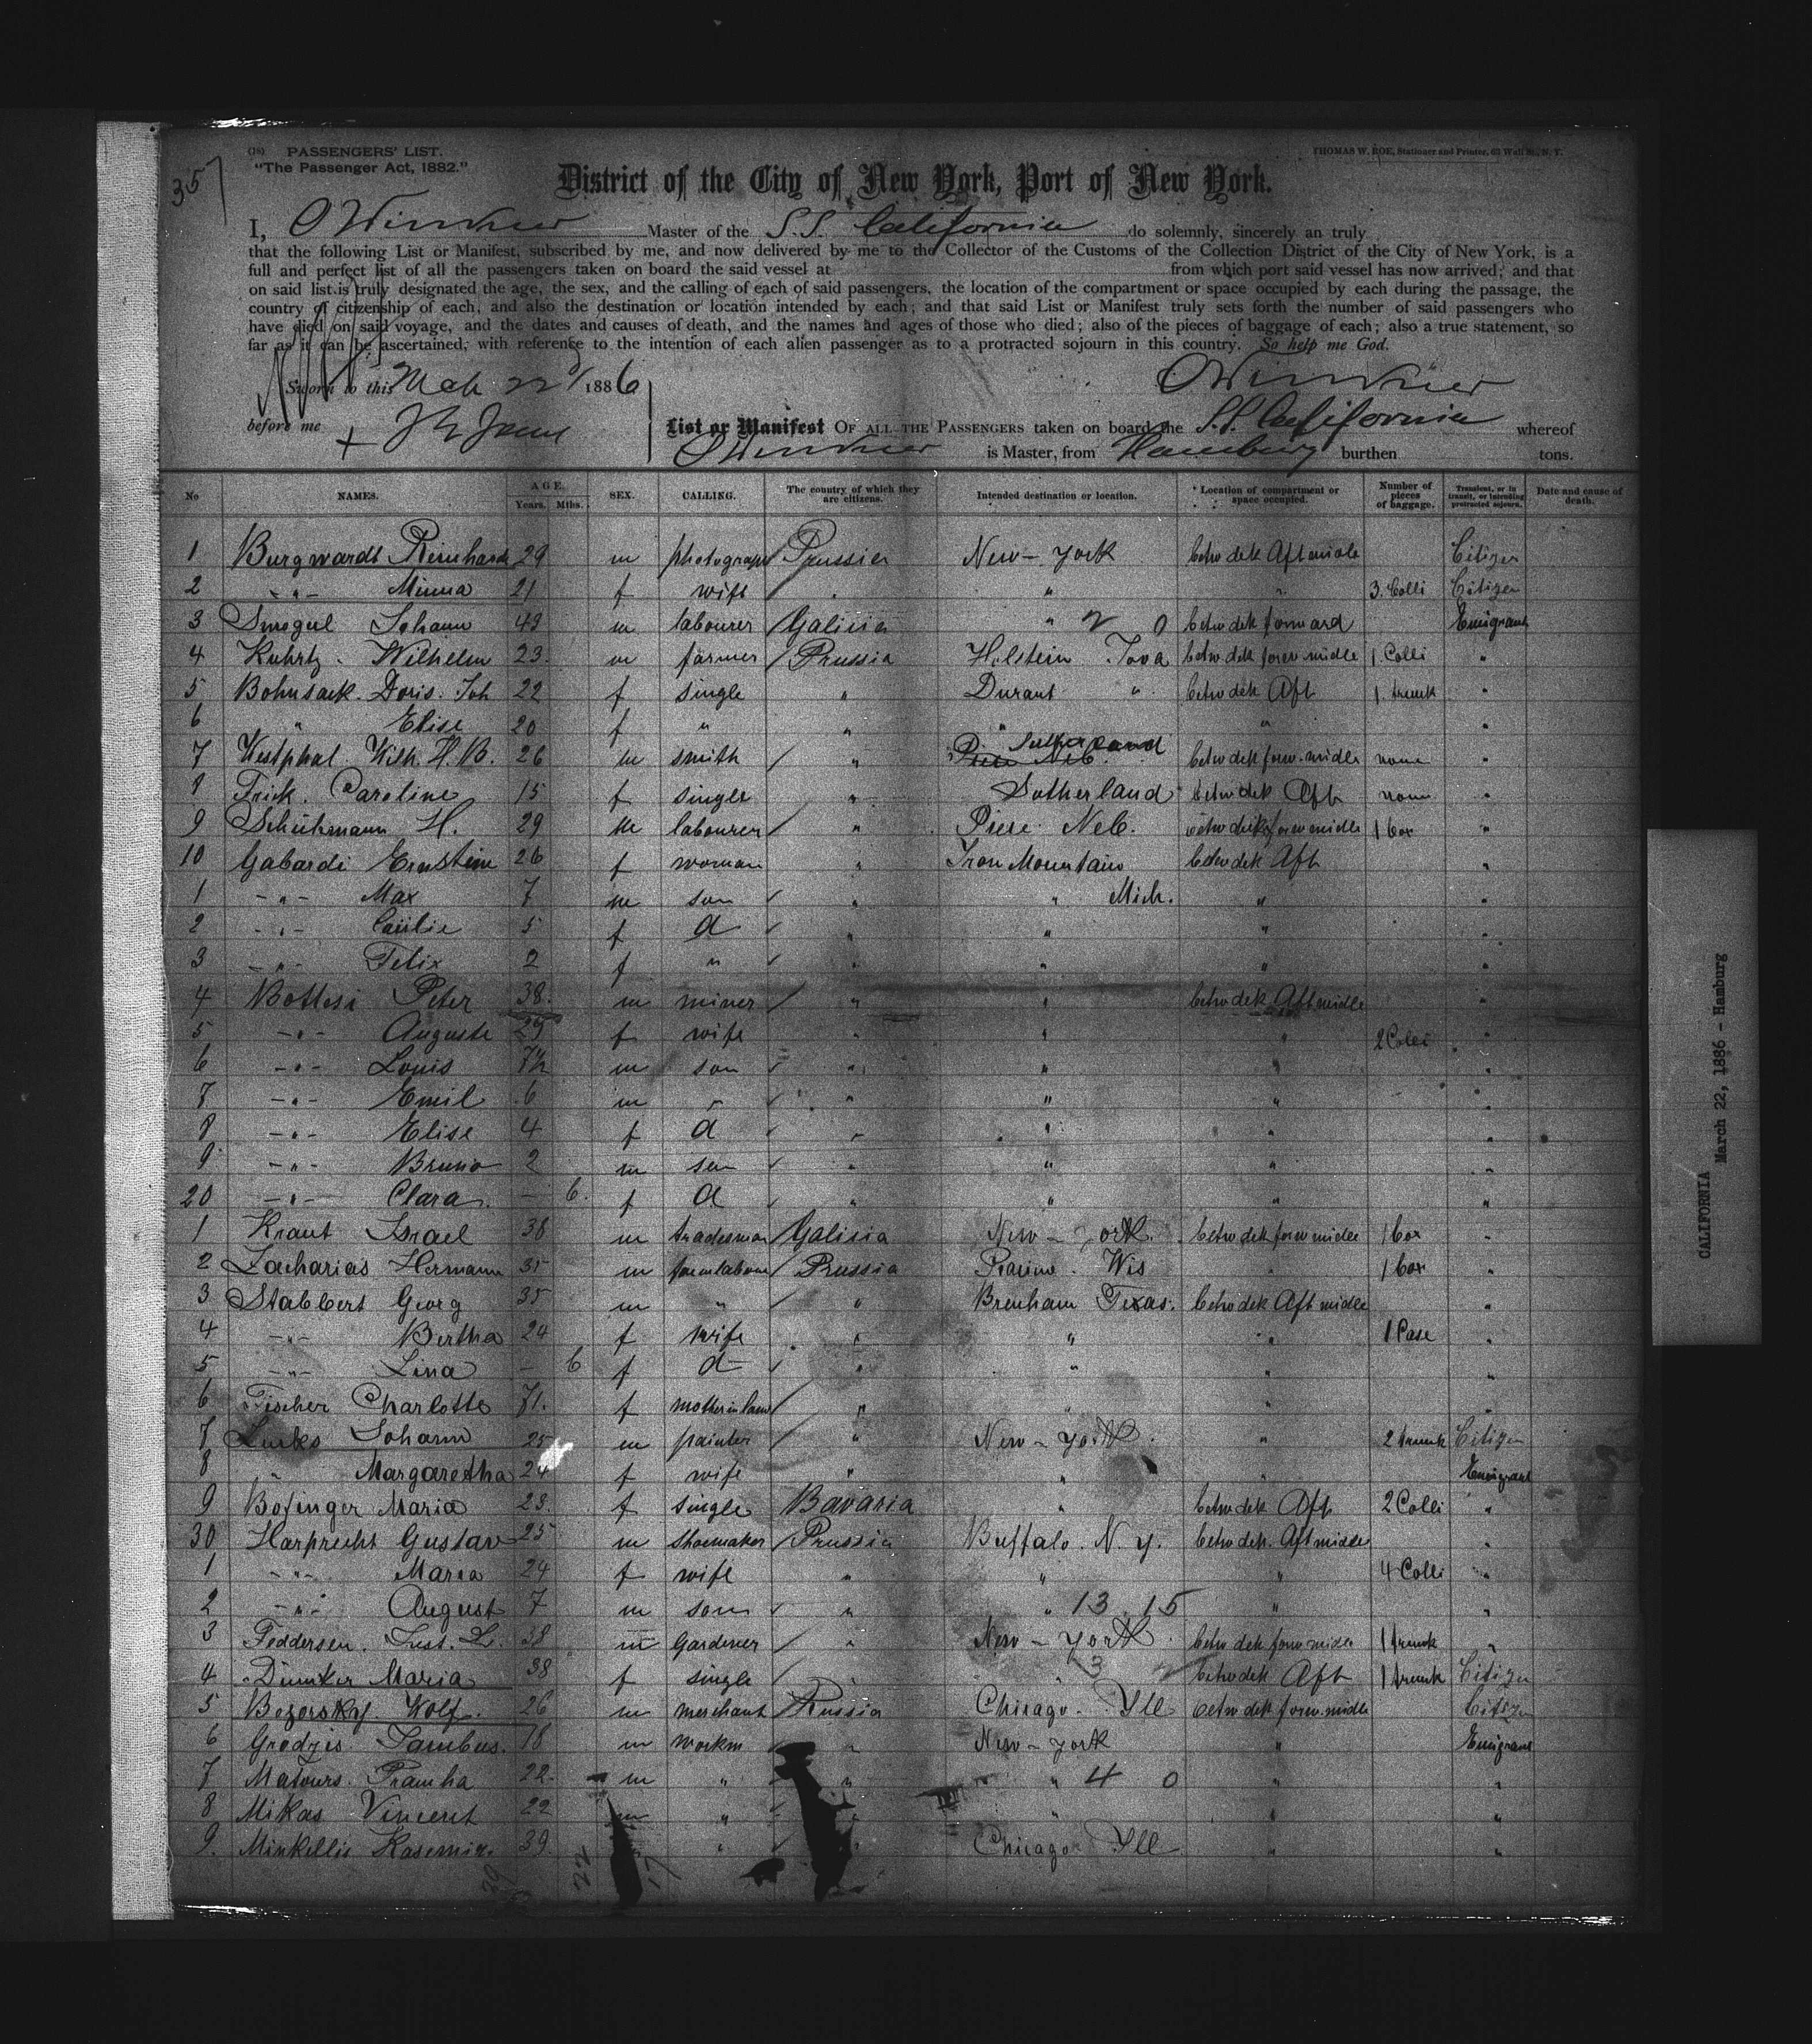 (18) PASSENGERS' LIST.
THOMAS W. ROE, Stationer and Printer, 63 Wall St., N. Y.
"The Passenger Act, 1882."
357
District of the City of New York, Port of New York.
I, Master of the S.S. California do solemnly, sincerely an truly
that the following List or Manifest, subscribed by me, and now delivered by me to the Collector of the Customs of the Collection District of the City of New York, is a
full and perfect list of all the passengers taken on board the said vessel at from which port said vessel has now arrived; and that
on said list is truly designated the age, the sex, and the calling of each of said passengers, the location of the compartment or space occupied by each during the passage, the
country of citizenship of each, and also the destination or location intended by each; and that said List or Manifest truly sets forth the number of said passengers who
have died on said voyage, and the dates and causes of death, and the names and ages of those who died; also of the pieces of baggage of each; also a true statement, so
far as it can be ascertained, with reference to the intention of each alien passenger as to a protracted sojourn in this country. So help me God.
Sworn to this Mch 22d 1886
before me
List or Manifest OF ALL THE PASSENGERS taken on board the S.S. California whereof
is Master, from Hamburg burthen tons.
No NAMES. AGE. Years. Mths. SEX. CALLING. The country of which they are citizens. Intended destination or location. Location of compartment or space occupied. Number of pieces of baggage. Transient, or in transit, or intending protracted sojourn. Date and cause of death.
1 Burgwardt 29 m photograph Prussia New-York betw dek Aft midle Citizen
2 -"- Minna 21 f wife " " " 3 Colli Citizen
3 Johann 43 m labourer Galicia " 2 0 betw dek forward Emigrant
4 Kuhrtz. Wilhelm 23. m farmer Prussia Holstein Iova betw dek forw midle 1 Colli "
5 Bohnsack. Doris. Joh 22 f single " Durant " betw dek Aft 1 trunk "
6 " Elise 20 f " " " " "
7 Westphal. Wilh. H. B. 26 m smith " Sutherland betw dek forw. midle none "
8 Frick. Caroline 15 f single " Sotherland betw dek Aft none "
9 H. 29 m labourer " Piere Neb. betw dek forw midle 1 box "
10 Gabardi Ernstine 26 f woman " Iron Mountain betw dek Aft "
1 -"- Max 7 m son " " Mich. " "
2 -"- 5 f d " " " "
3 -"- Felix 2 f " " " " "
4 Bottesi Peter 38. m miner " " betw dek Aft midle "
5 -"- Auguste 29 f wife " " " 2 Colli "
6 -"- Louis 7½ m son " " " "
7 -"- Emil 6 m " " " " "
8 -"- Elise 4 f d " " " "
9 -"- Bruno 2 m son " " " "
20 -"- Clara. - 6. f d " " " "
1 Kraut Israel 38 m tradesman Galisia New-York. betw dek forw midle 1 box "
2 Zacharias Hermann 35 m Prussia Wis " 1 box "
3 Stabbert Georg 35 m " " Brenham Texas. betw dek Aft midle "
4 -"- Bertha 24 f wife " " " 1 Case "
5 -"- Lina - 6 f d " " " "
6 Fischer Charlotte 71. f mother in law " " " "
7 Johann 25 m painter " New-York. " 2 trunk Citizen
8 " Margaretha 24 f wife " " " Emigrant
9 Bosinger Maria 23. f single Bavaria " betw dek Aft 2 Colli "
30 Harprecht Gustav 25 m shoemaker Prussia Buffalo. N. y. betw dek. Aft midle "
1 -"- Maria 24 f wife " " " 4 Colli "
2 -"- August 7 m son " " 13 15 " "
3 Feddersen. 38 m gardener " New-York. betw dek forw midle 1 trunk "
4 Maria 38 f single " " 3 betw dek Aft 1 trunk Citizen
5 Wolf. 26 m merchant Russia Chicago. Ill betw dek forw. midle Citizen
6 18 m workm " New-york " Emigrant
7 22. m " " " 4 0 " "
8 Mikas Vincent 22 m " " " " "
9. Minkellis Kasemir. 39 " " Chicago Ill " "
CALIFORNIA
March 22, 1886 - Hamburg